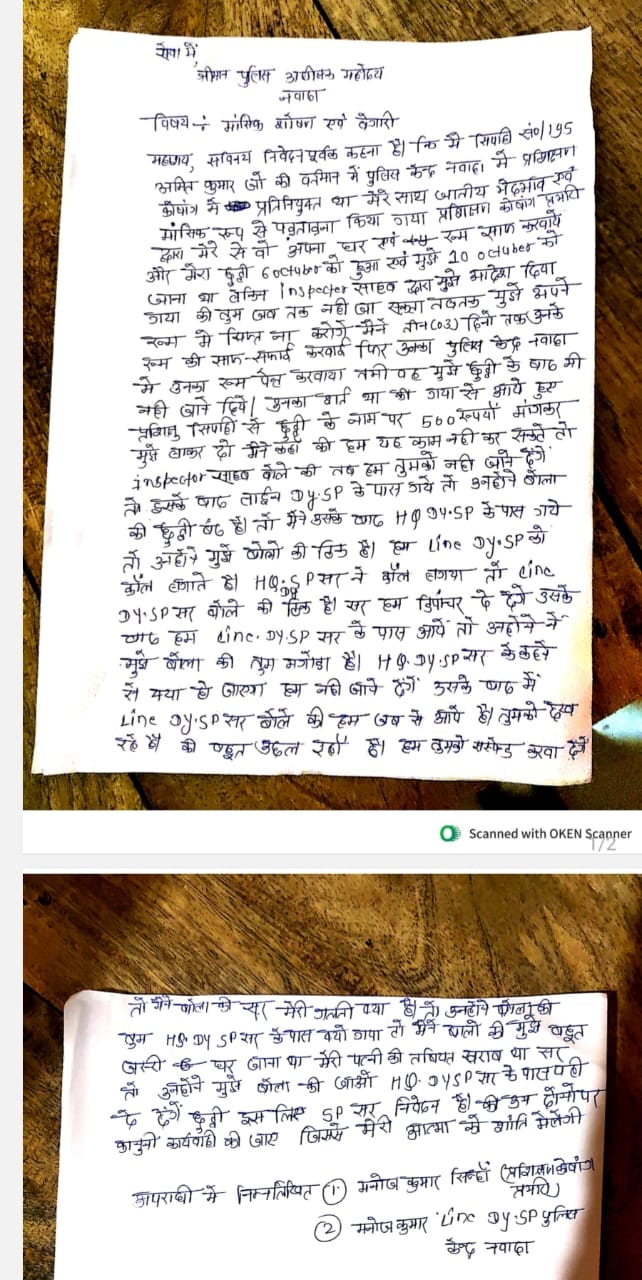 सेवा में,
श्रीमान पुलिस अधीक्षक महोदय
नवादा
विषय :- मांसिक शोषण एवं बेगारी
महाशय, सविनय निवेदन पूर्वक कहना है। कि मैं सिपाही सं0/195
अमित कुमार जो की वर्तमान में पुलिस केन्द्र नवादा में प्रशिक्षण
कोषांग में प्रतिनियुक्त था मेरे साथ जातीय भेदभाव एवं
मांसिक रूप से किया गया प्रशिक्षण कोषांग प्रभारी
द्वारा मेरे से वो अपना घर एवं रूम साफ करवाये
और मेरा छुट्टी 6 octuber को हुआ एवं मुझे 10 octuber को
जाना था लेकिन Inspector साहब द्वारा मुझे आदेश दिया
गया की तुम जब तक नही जा सकता तबतक मुझे अपने
रूम मे ना करोगे मैंने तीन (03) दिनों तक उनके
रूम की साफ-सफाई करवाई फिर उनका पुलिस केन्द्र नवादा
मे उनका रूम पेंट करवाया तभी वह मुझे छुट्टी के बाद भी
नही जाने दिये। उनका शर्त था की गया से आये हुए
प्रशिक्षु सिपाही से छुट्टी के नाम पर 500 रूपयों मांगकर
मुझे लाकर दो मैंने कहा की हम यह काम नही कर सकते तो
inspector साहब बोले की तब हम तुमको नही जाने देंगे
तो इसके बाद लाईन DY.SP के पास गये तो उन्होंने बोला
की छुट्टी बंद है। तो मैंने उसके बाद HQ DY.SP के पास गये
तो उन्होंने मुझे बोलो की ठिक है। हम Line DY.SP को
कॉल लगाते है। HQ.DY SP सर ने कॉल लगाया तो Line
DY.SP सर बोले की ठिक है। सर हम डिपांचर दे देंगे उसके
बाद हम Line. DY.SP सर के पास आये तो उन्होने ने
मुझे बोला की तुम भगोड़ा है। HQ.DY.SP सर के कहने
से क्या हो जाएगा हम नही जाने देंगे उसके बाद में
Line DY.SP सर बोले की हम जब से आये है। तुमको देख
रहे है की बहुत उछल रहा है। हम तुमको सस्पेंड करवा देंगे
Scanned with OKEN Scanner
1/2
तो मैंने बोला की सर मेरी गलती क्या है। तो उन्होने बोला की
तुम HQ DY SP सर के पास क्यों गया तो मैंने बोलो की मुझे बहुत
जल्दी घर जाना था मेरी पत्नी की तबियत खराब था सर
तो उन्होने मुझे बोला की जाओ HQ.DYSP सर के पास वही
दे देंगे छुट्टी इस लिए SP सर निवेदन है। की इन दोनो पर
कानुनी कार्यवाही की जाए जिससे मेरी आत्मा को शांति मिलेगी
अपराधी में निम्नलिखित (1) मनोज कुमार सिन्हाँ (प्रशिक्षण कोषांग
प्रभारी)
(2) मनोज कुमार Line DY.SP पुलिस
केन्द्र नवादा